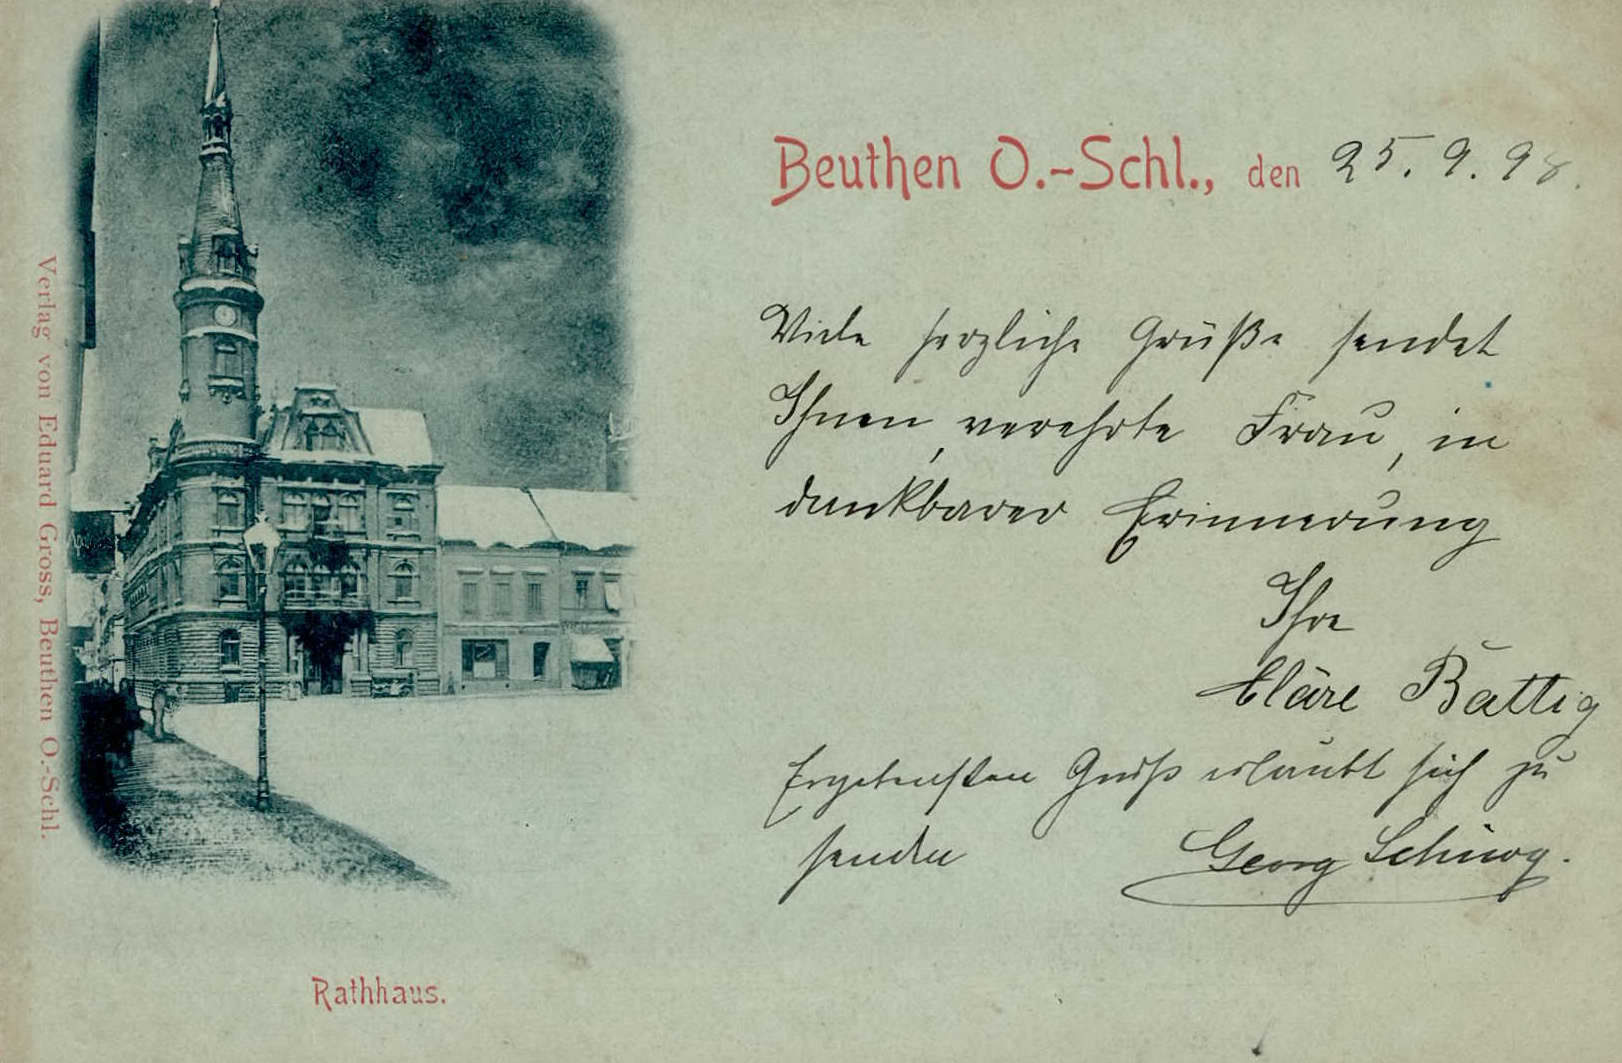 Beuthen O.-Schl., den 25. 9. 98.
Viele herzliche Grüße sendet
Ihnen, verehrte Frau, in
dankbarer Erinnerung
Ihre
Cläre Battig
Ergebensten Gruß erlaubt sich zu
senden Georg
Verlag von Eduard Gross, Beuthen O.-Schl.
Rathhaus.